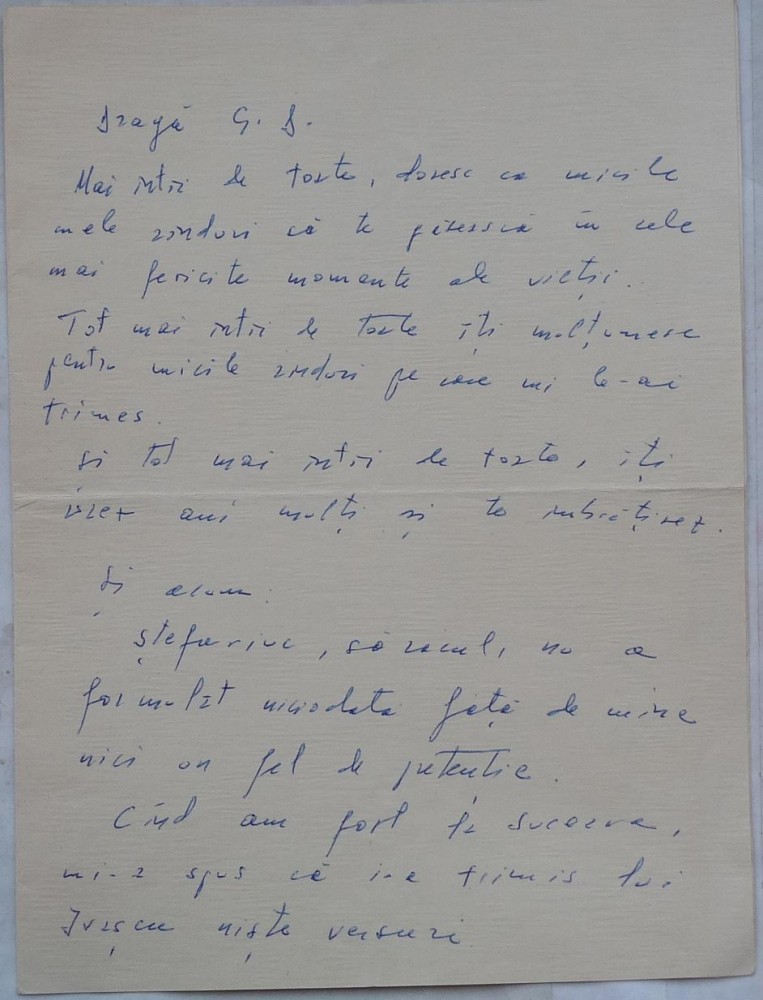 Dragă G. D.
Mai întîi de toate, doresc ca micile
mele rînduri că te găsească în cele
mai fericite momente ale vieții.
Tot mai întîi de toate îți mulțumesc
pentru micile rînduri pe care mi le-ai
trimes.
Și tot mai întîi de toate, îți
urez ani mulți și te îmbrățișez.
Și acum:
Ștefuriuc, săracul, nu a
formulat niciodată față de mine
nici un fel de pretenție.
Cînd am fost la Suceava,
mi-a spus că i-a trimis lui
Ivașcu niște versuri